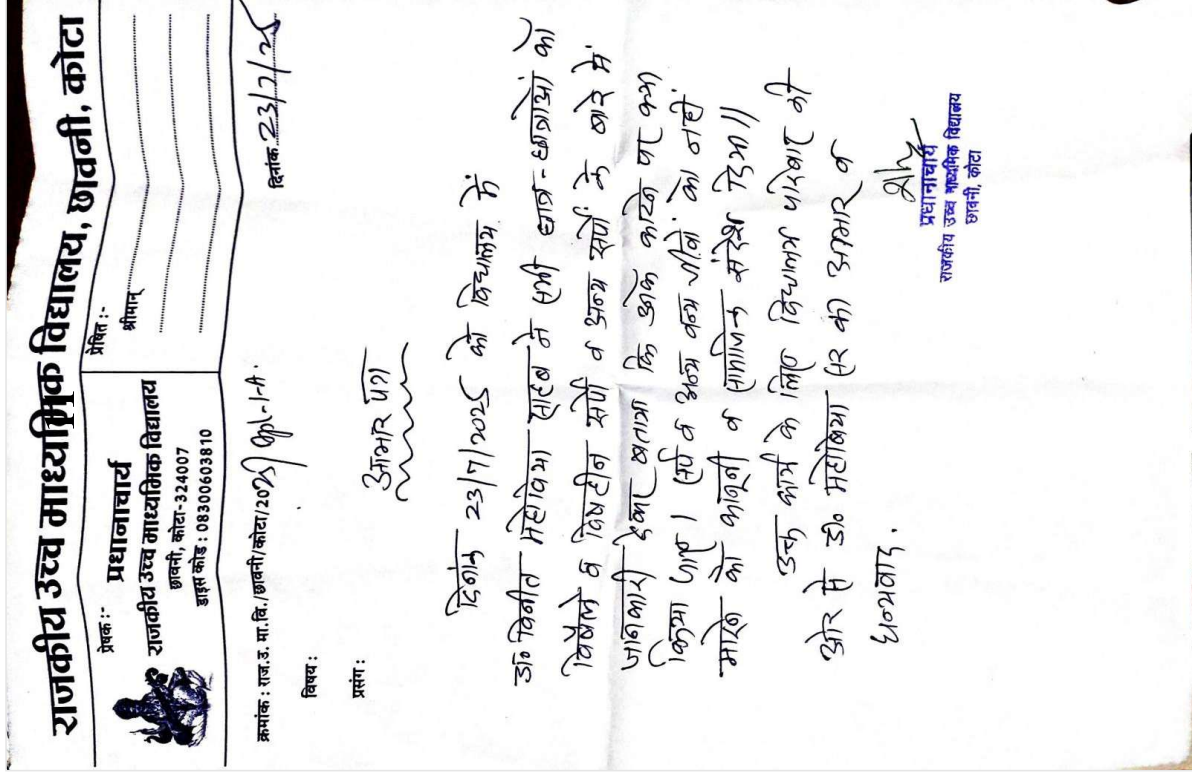 राजकीय उच्च माध्यमिक विद्यालय, छावनी, कोटा
प्रेषक :-
प्रधानाचार्य
राजकीय उच्च माध्यमिक विद्यालय
छावनी, कोटा-324007
डाइस कोड : 08300603810
प्रेषित :-
श्रीमान्
क्रमांक : राज.उ. मा.वि./छावनी/कोटा/2025/
दिनांक 23/7/25
विषय :
प्रसंग :
आभार पत्र
दिनांक 23/7/2025 को विद्यालय में
डॉ० विनीत महोबिया साहब ने सभी छात्र-छात्राओं को
विषैले व विषहीन सर्पो व अन्य सर्पो के बारे में
जानकारी देकर बताया कि स्नेक काटने पर क्या
किया जाए। सर्प व अन्य वन्य जीवों को नहीं
मारने को कानूनी व सामाजिक संदेश दिया॥
उक्त कार्य के लिए विद्यालय परिवार की
ओर से डॉ० महोबिया सर को आभार व
धन्यवाद.
प्रधानाचार्य
राजकीय उच्च माध्यमिक विद्यालय
छावनी, कोटा